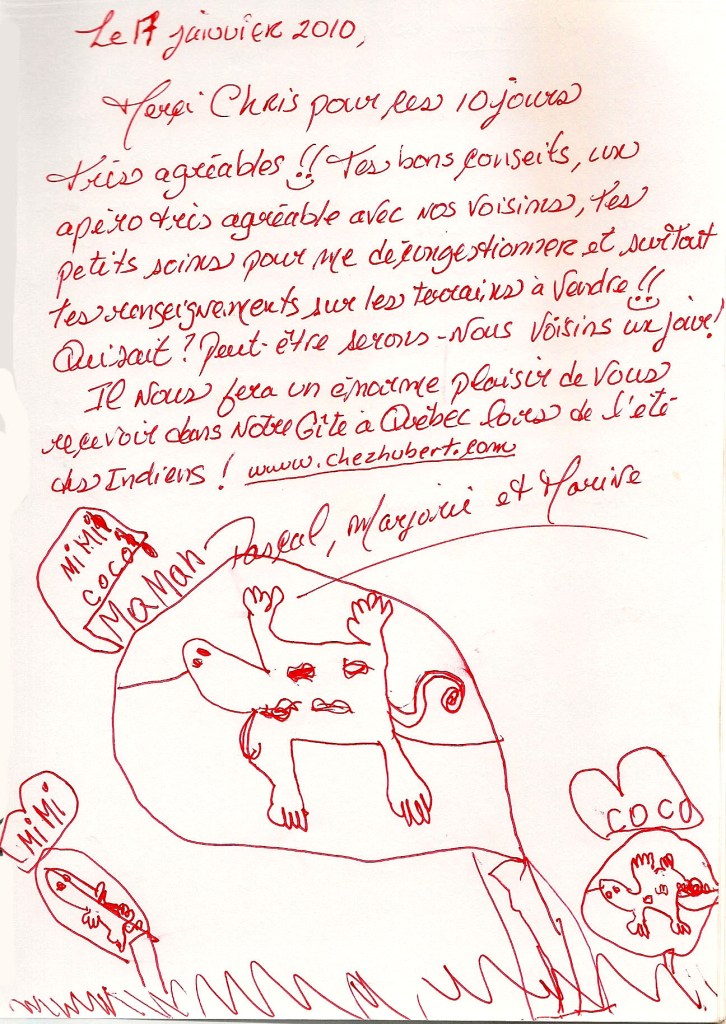 Le 17 janvier 2010,
Merci Chris pour les 10 jours
très agréables !! Tes bons conseils, un
apéro très agréable avec nos voisins, tes
petits soins pour me décongestionner et surtout
tes renseignements sur les terrains à vendre !!
Qui sait ? Peut-être serons-nous voisins un jour !
Il nous fera un énorme plaisir de vous
recevoir dans notre Gîte à Québec lors de l'été
des Indiens ! www.chezhubert.com
Pascal, Marjorie et Marine
MiMi
COCO
MaMaN
MiMi
COCO